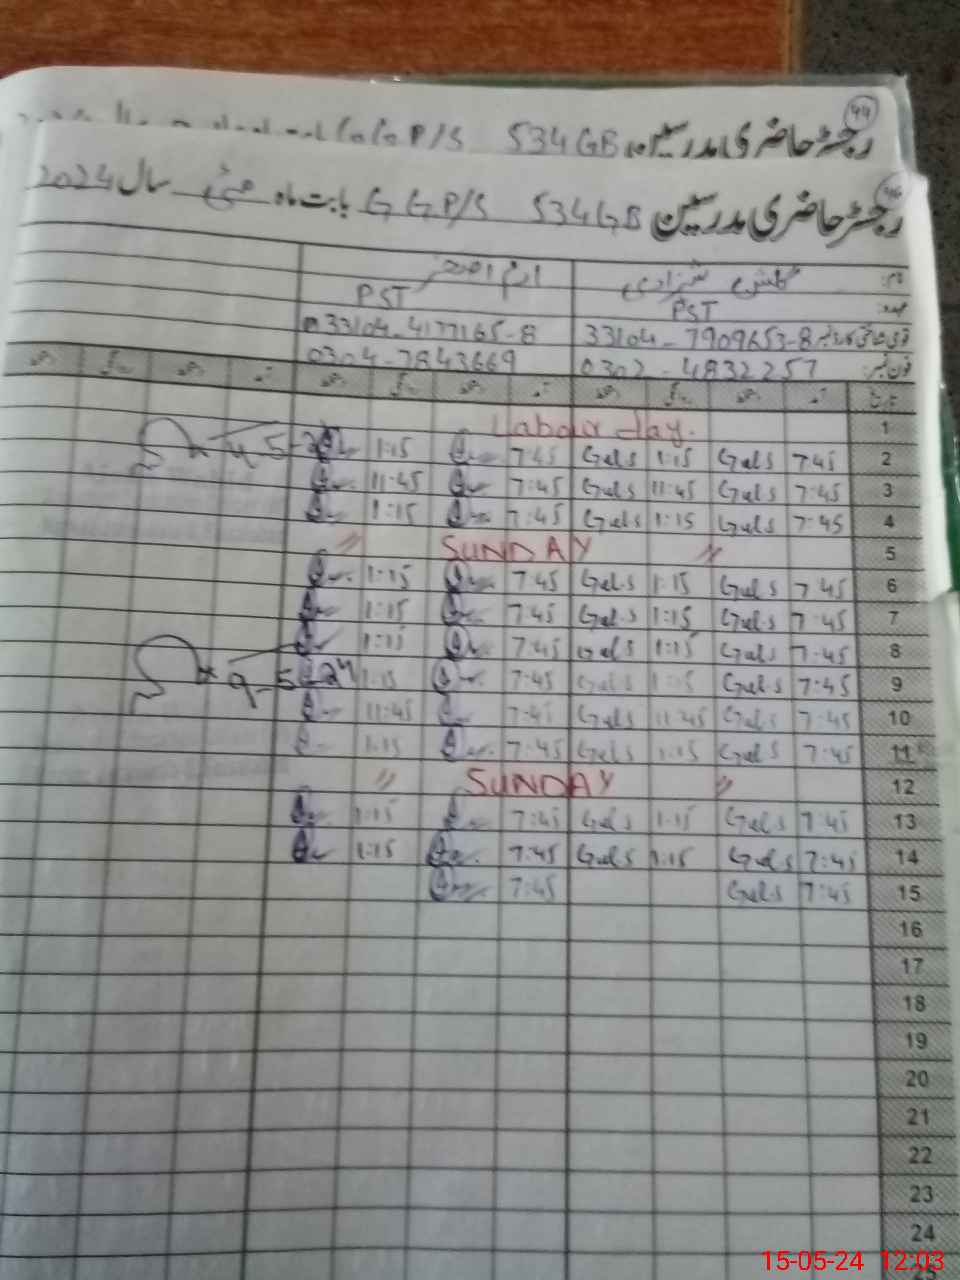 44
رجسٹر حاضری مدرسین G G P/S 534 GB
46
رجسٹر حاضری مدرسین 534 GB G G P/S بابت ماہ مئی سال 2024
نام: گلشن شہزادی ارم
عہدہ: PST PST
قومی شناختی کارڈ نمبر 33104-7909653-8 33104-4177165-8
فون نمبر: 0302-4832257 0304-7843669
تاریخ آمد دستخط روانگی دستخط آمد دستخط روانگی دستخط آمد دستخط روانگی دستخط
1 Labour day.
2 7:45 Guls 1:15 Guls 7:45 1:15 4-5-24
3 7:45 Guls 11:45 Guls 7:45 11:45
4 7:45 Guls 1:15 Guls 7:45 1:15
5 〃 SUNDAY 〃
6 7:45 Guls 1:15 Guls 7:45 1:15
7 7:45 Guls 1:15 Guls 7:45 1:15
8 7:45 Guls 1:15 Guls 7:45 1:15
9 7:45 Guls 1:15 Guls 7:45 1:15 9-5-24
10 7:45 Guls 11:45 Guls 7:45 11:45
11 7:45 Guls 1:15 Guls 7:45 1:15
12 〃 SUNDAY 〃
13 7:45 Guls 1:15 Guls 7:45 1:15
14 7:45 Guls 1:15 Guls 7:45 1:15
15 7:45 Guls 7:45
16
17
18
19
20
21
22
23
24
15-05-24 12:03